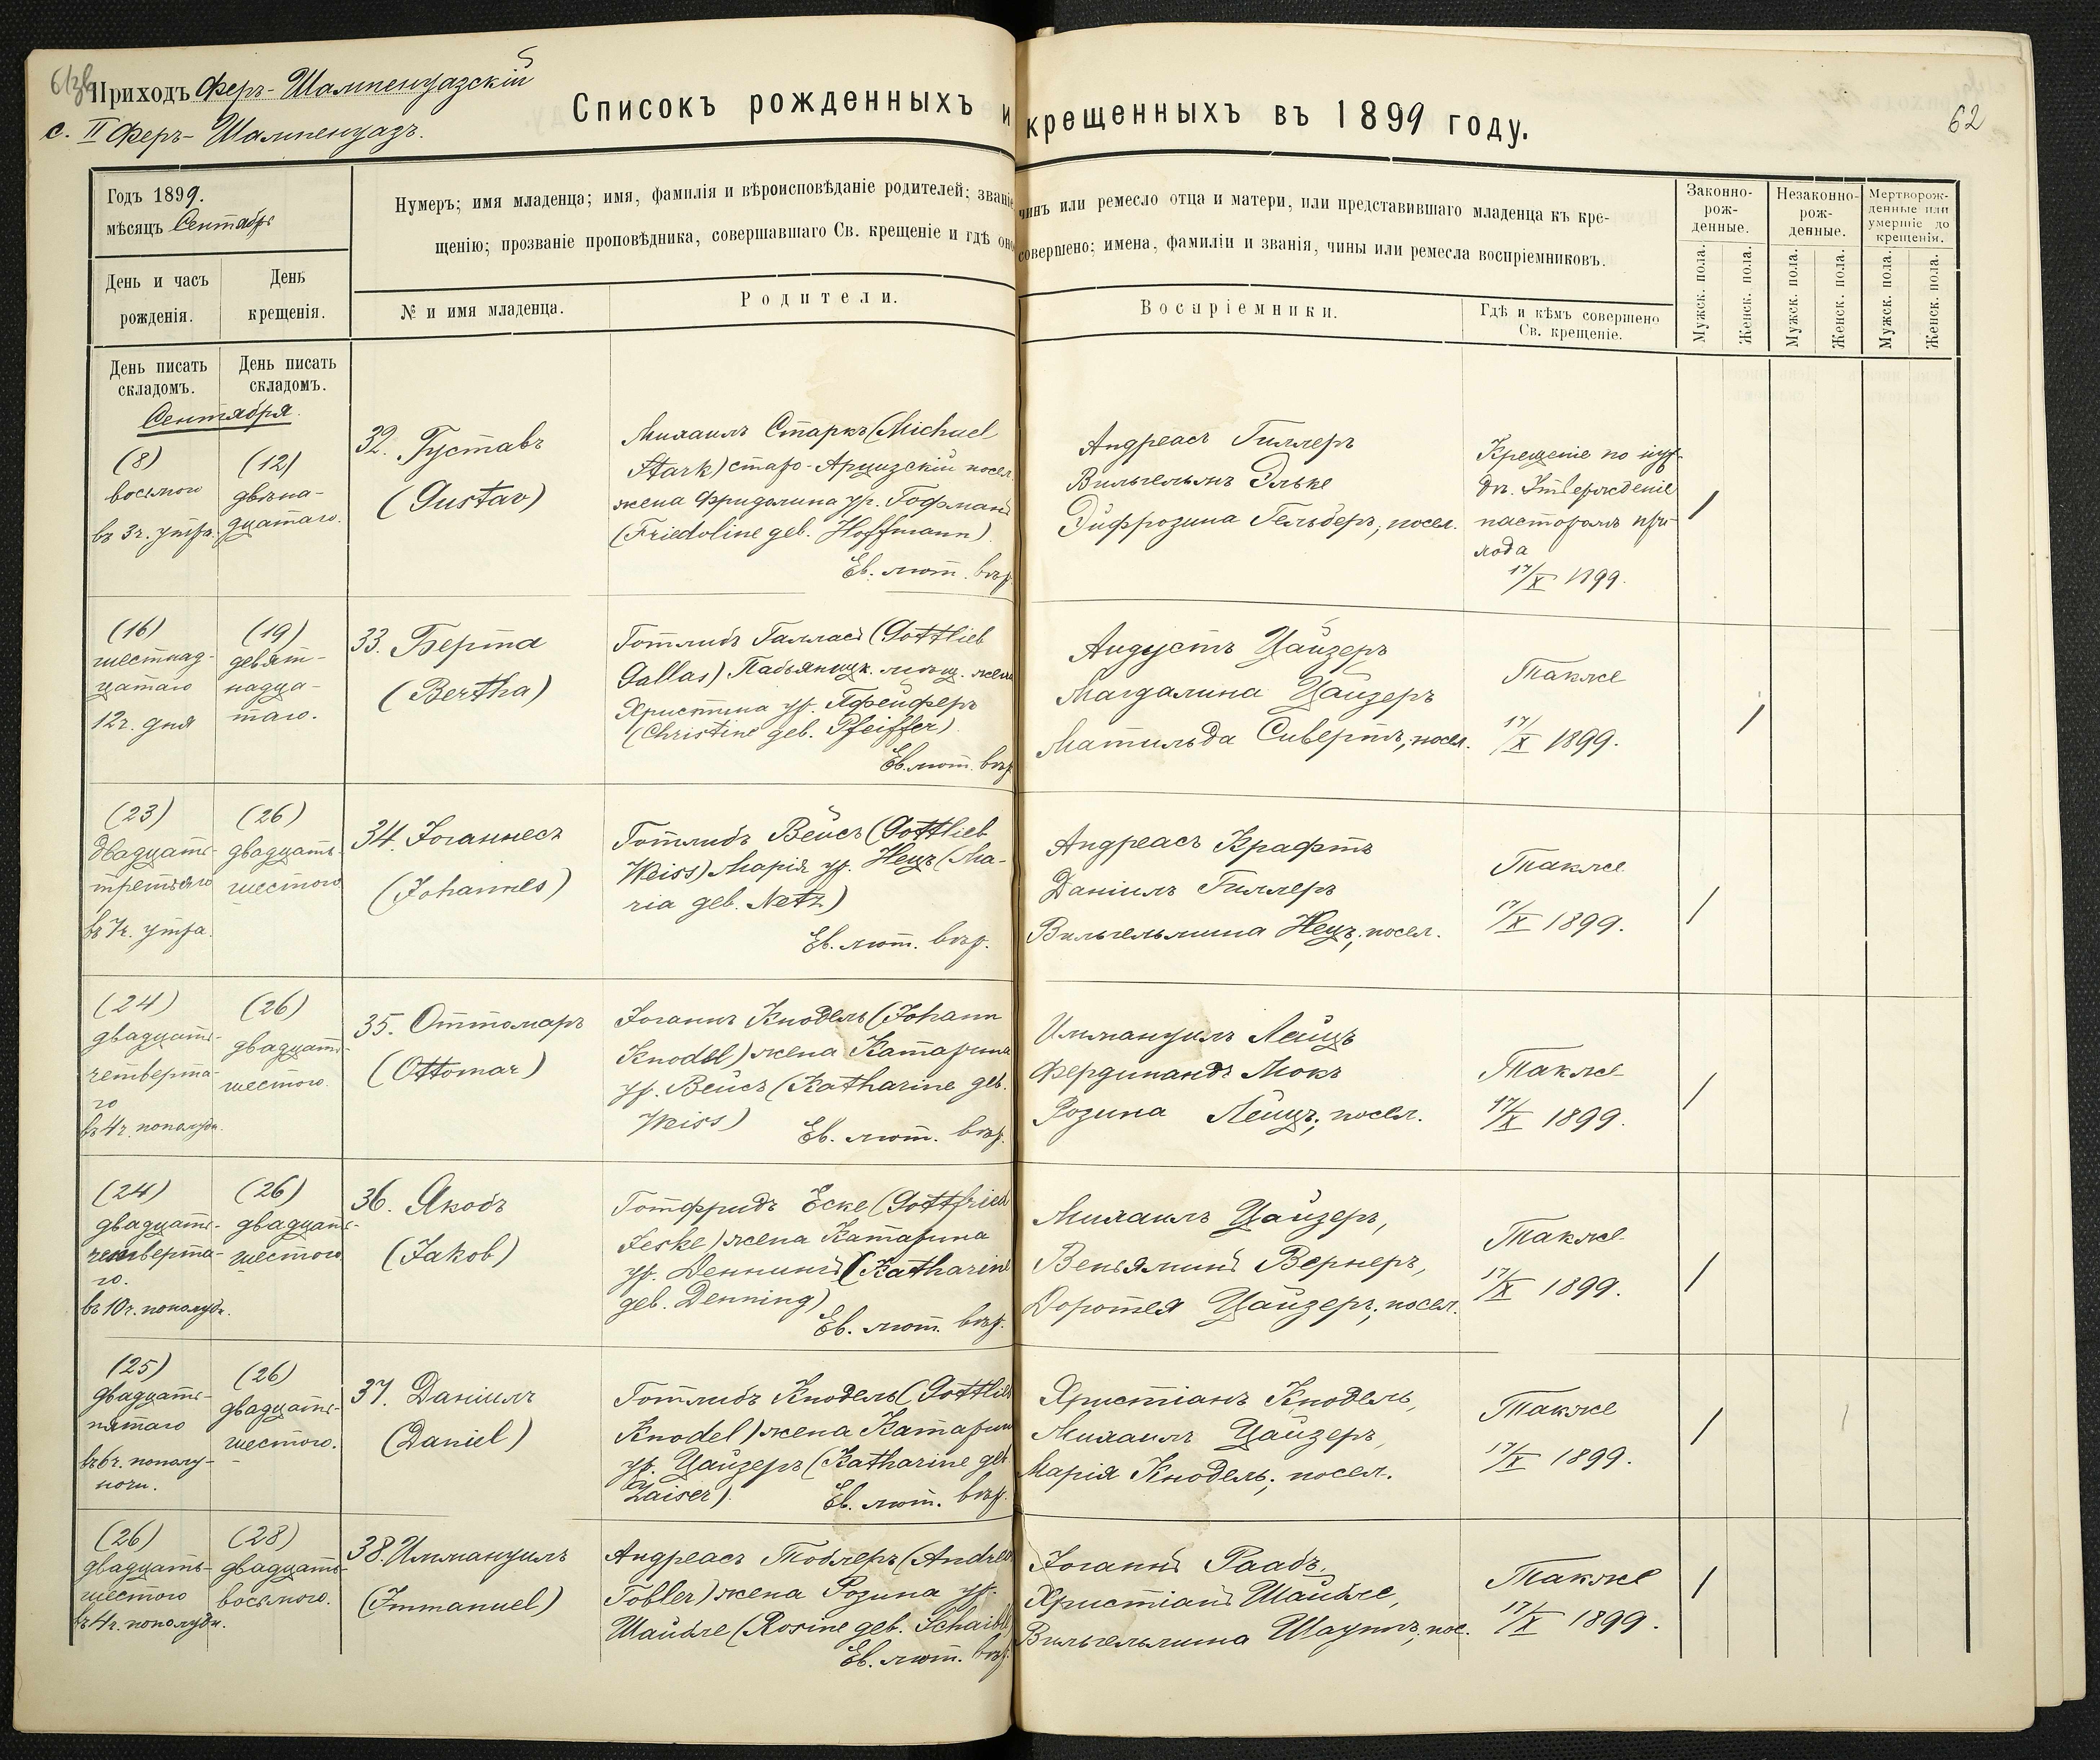 Приходъ Феръ-Шампенуазскій
с. II Феръ-Шампенуазъ.
Списокъ рожденныхъ и крещенныхъ въ 1899 году.
62
Годъ 1899.
мѣсяцъ Сентябрь
День и часъ рожденія.
День крещенія.
Нумеръ; имя младенца; имя, фамилія и вѣроисповѣданіе родителей; званіе чинъ или ремесло отца и матери, или представившаго младенца къ кре-
щенію; прозваніе проповѣдника, совершавшаго Св. крещеніе и гдѣ оно совершено; имена, фамиліи и званія, чины или ремесла воспріемниковъ.
№ и имя младенца.
Родители.
Воспріемники.
Гдѣ и кѣмъ совершено
Св. крещеніе.
Законно-
рож-
денные.
Незаконно-
рож-
денные.
Мертворож-
денные или
умершіе до
крещенія.
Мужск. пола.
Женск. пола.
Мужск. пола.
Женск. пола.
Мужск. пола.
Женск. пола.
День писать
складомъ.
День писать
складомъ.
Сентября.
(8)
восьмого
въ 3ч. утра.
(12)
двѣна-
дцатаго.
32. Густавъ
(Gustav)
Михаилъ Старкъ (Michael
Stark) старо-Арцизскій посел.
жена Фридолина ур. Гофманъ
(Friedoline geb. Hoffmann)
Ев. лют. вѣр.
Андреасъ Гиллеръ
Вильгельмъ Эльке
Эйфрозина Гельберъ, посел.
Крещеніе по
Утвержденіе
пасторомъ при-
хода
17/X 1899.
/
(16)
шестнад-
цатаго
12ч. дня
(19)
девят-
надца-
таго.
33. Берта
(Bertha)
Готлибъ Галласъ (Gottlieb
Gallas) Пабьяницк. мѣщ. жена
Христина ур. Пфейферъ
(Christine geb. Pfeiffer)
Ев. лют. вѣр.
Августъ Цайзеръ
Магдалина Цайзеръ
Матильда Сивертъ, посел.
Также
17/X 1899.
/
(23)
двадцать-
третьяго
въ 7ч. утра.
(26)
двадцать-
шестого
34. Іоганнесъ
(Johannes)
Готлибъ Вейсъ (Gottlieb
Weiss) Марія ур. Нецъ (Ma-
ria geb. Netz)
Ев. лют. вѣр.
Андреасъ Крафтъ
Даніилъ Гиллеръ
Вильгельмина Нецъ, посел.
Также
17/X 1899.
/
(24)
двадцать-
четверта-
го
въ 4ч. пополудн.
(26)
двадцать-
шестого.
35. Оттомаръ
(Ottomar)
Іоганнъ Кнодель (Johann
Knodel) жена Катарина
ур. Вейсъ (Katharine geb.
Weiss)
Ев. лют. вѣр.
Иммануилъ Лейцъ
Фердинандъ Мокъ
Розина Лейцъ, посел.
Также
17/X 1899.
/
(24)
двадцать-
четверта-
го.
въ 10ч. пополудн.
(26)
двадцать-
шестого
36. Якобъ
(Jakob)
Готфридъ Еске (Gottfried
Jeske) жена Катарина
ур. Деннингъ (Katharine
geb. Denning)
Ев. лют. вѣр.
Михаилъ Цайзеръ,
Веньяминъ Вернеръ,
Доротея Цайзеръ, посел.
Также
17/X 1899.
/
(25)
двадцать-
пятаго
въ 6ч. пополу-
ночи.
(26)
двадцать-
шестого.
37. Даніилъ
(Daniel)
Готлибъ Кнодель (Gottlieb
Knodel) жена Катарина
ур. Цайзеръ (Katharine geb.
Zaiser).
Ев. лют. вѣр.
Христіанъ Кнодель,
Михаилъ Цайзеръ,
Марія Кнодель; посел.
Также
17/X 1899.
/
(26)
двадцать-
шестого
въ 4ч. пополудн.
(28)
двадцать-
восьмого.
38. Иммануилъ
(Immanuel)
Андреасъ Тоблеръ (Andreas
Tobler) жена Розина ур.
Шайбле (Rosine geb. Schaible)
Ев. лют. вѣр.
Іоганнъ Раабъ,
Христіанъ Шайбле,
Вильгельмина Шауптъ, пос.
Также
17/X 1899.
/